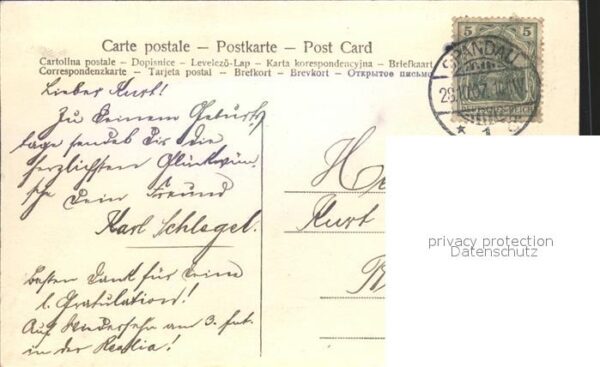 Carte postale – Postkarte – Post Card
Cartolina postale – Dopisnice – Levelező-Lap – Karta korespondencyjna – Briefkaart
Correspondenzkarte – Tarjeta postal – Brefkort – Brevkort – Открытое письмо
5 5
SPANDAU
* 1
Lieber Kurt!
Zu Deinem Geburts
tage sendet Dir die
herzlichsten Glückwün-
sche Dein Freund
Karl Schlegel.
Besten Dank für Deine
l. Gratulation!
Auf Wiedersehn am 3. 
in der Realia!
He
Kurt
B
privacy protection
Datenschutz